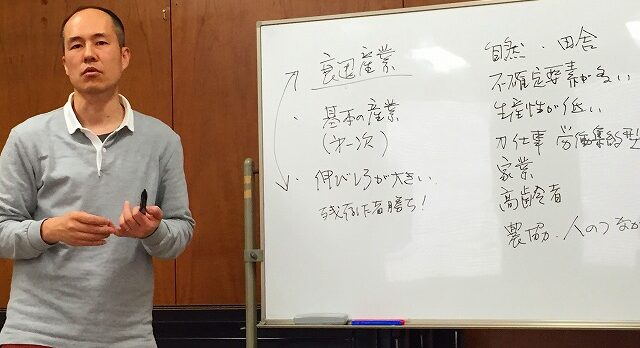 衰退産業
・基本の産業
(第一次)
・伸びしろが大きい
残存者勝ち!
自然・田舎
不確定要素が多い
生産性が低い
力仕事 労働集約型
家業
高齢者
農協・人のつなが